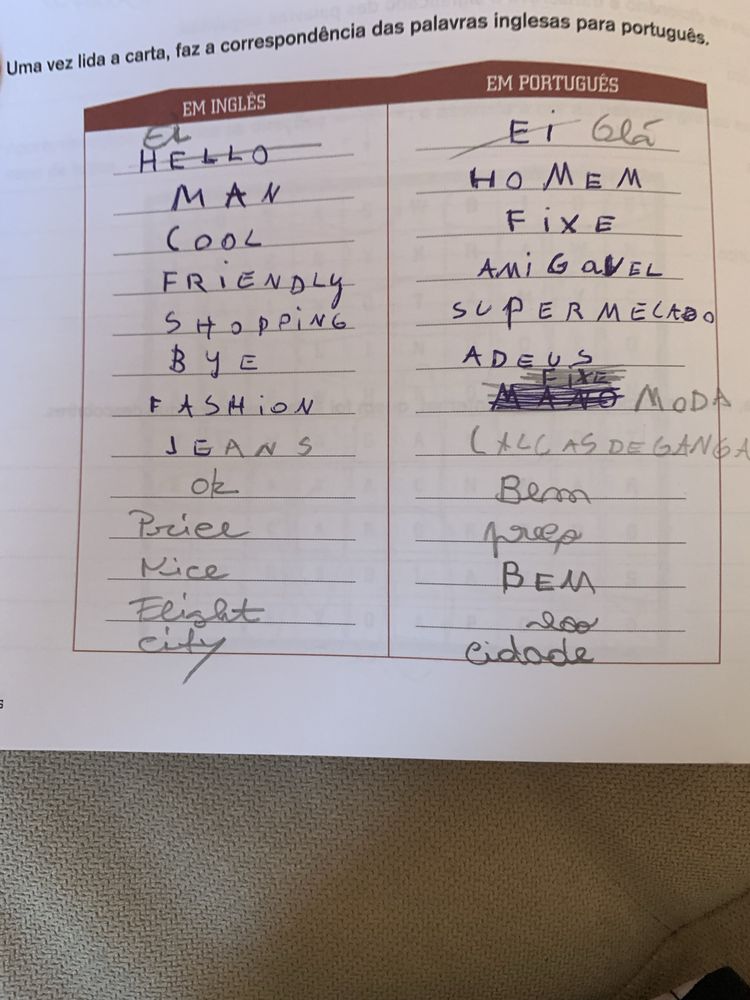 Uma vez lida a carta, faz a correspondência das palavras inglesas para português.
EM INGLÊS EM PORTUGUÊS
Ei
HELLO Ei Olá
MAN HOMEM
COOL FiXE
FRiENDLy AMiGaVEL
SHOPPiNG SUPERMECADO
BYE ADEUS
FiXE
FASHiON MANO MODA
JEANS CALCAS DE GANGA
Ok Bem
Price preço
Nice BEM
Flight voo
city cidade